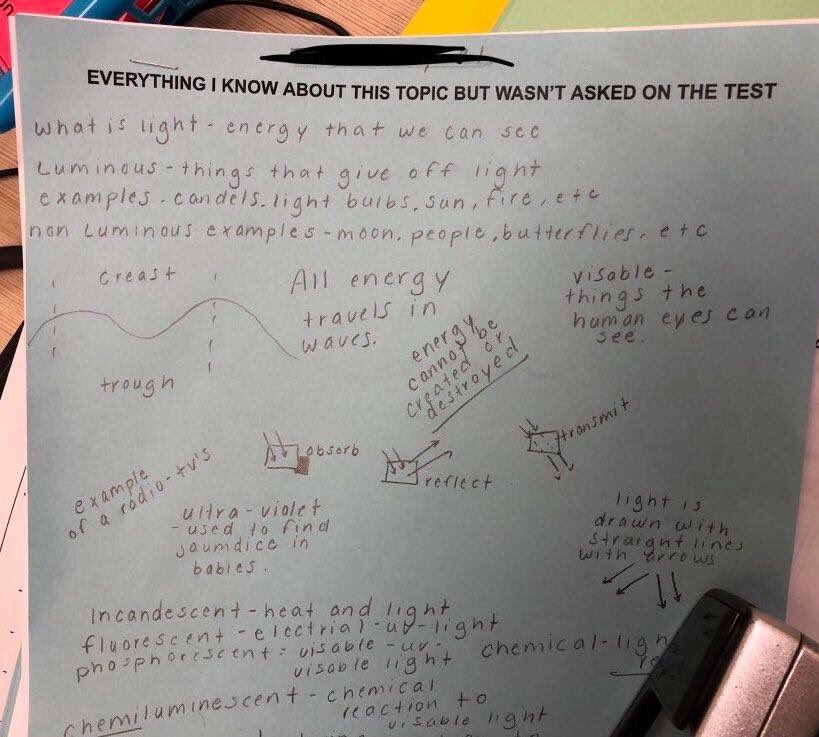 EVERYTHING I KNOW ABOUT THIS TOPIC BUT WASN'T ASKED ON THE TEST
what is light - energy that we can see
Luminous - things that give off light
examples - candels, light bulbs, sun, fire, etc
non Luminous examples - moon, people, butterflies, etc
creast
trough
All energy
travels in
waves.
energy
cannot be
created or
destroyed
visable -
things the
human eyes can
see.
absorb
reflect
transmit
example
of a radio - tv's
ultra - violet
- used to find
jaumdice in
babies.
light is
drawn with
straight lines
with arrows
Incandescent - heat and light
fluorescent - electrial - uv - light
phosphorescent = visable - uv -
visable light
chemical - ligh
chemiluminescent - chemical
reaction to
visable light